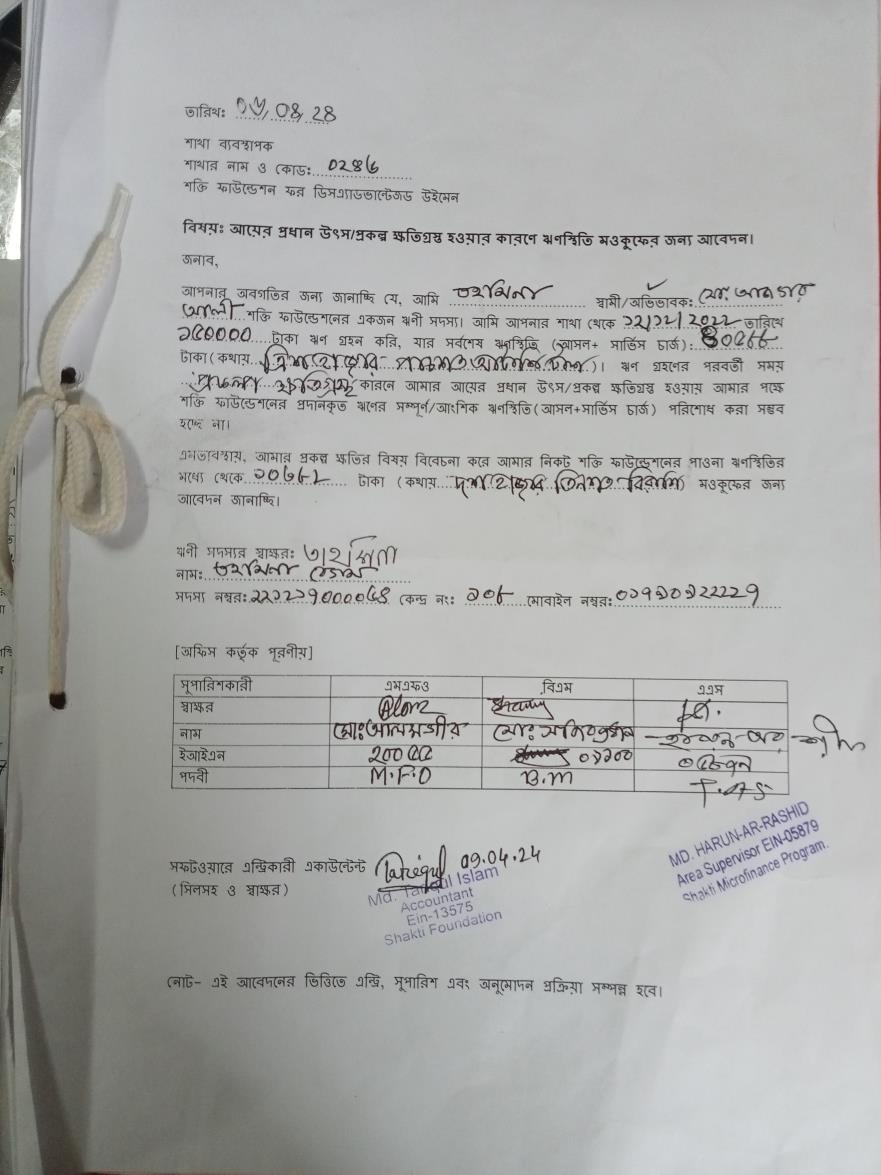 তারিখঃ ০৮/০৪/২৪
শাখা ব্যবস্থাপক
শাখার নাম ও কোডঃ ০২৪৬
শক্তি ফাউন্ডেশন ফর ডিসএ্যাডভান্টেজড উইমেন
বিষয়ঃ আয়ের প্রধান উৎস/প্রকল্প ক্ষতিগ্রস্থ হওয়ার কারণে ঋণস্থিতি মওকুফের জন্য আবেদন।
জনাব,
আপনার অবগতির জন্য জানাচ্ছি যে, আমি তহমিনা স্বামী/অভিভাবকঃ মোঃ
আলী শক্তি ফাউন্ডেশনের একজন ঋনী সদস্য। আমি আপনার শাখা থেকে ২২/১২/২০২২ তারিখে
১৫০০০০ টাকা ঋণ গ্রহন করি, যার সর্বশেষ ঋণস্থিতি (আসল+ সার্ভিস চার্জ):
টাকা (কথায় ত্রিশ হাজার পাঁচশত )। ঋণ গ্রহণের পরবর্তী সময়
প্রকল্প ক্ষতিগ্রস্থ কারনে আমার আয়ের প্রধান উৎস/প্রকল্প ক্ষতিগ্রস্থ হওয়ায় আমার পক্ষে
শক্তি ফাউন্ডেশনের প্রদানকৃত ঋণের সম্পূর্ণ/আংশিক ঋণস্থিতি (আসল+সার্ভিস চার্জ) পরিশোধ করা সম্ভব
হচ্ছে না।
এমতাবস্থায়, আমার প্রকল্প ক্ষতির বিষয় বিবেচনা করে আমার নিকট শক্তি ফাউন্ডেশনের পাওনা ঋণস্থিতির
মধ্যে থেকে ১০৩৮২ টাকা (কথায় দশ হাজার তিনশত বিরাশি) মওকুফের জন্য
আবেদন জানাচ্ছি।
ঋনী সদস্যর স্বাক্ষরঃ তাহমিনা
নামঃ তহমিনা বেগম
সদস্য নম্বরঃ কেন্দ্র নং: ১০৮ মোবাইল নম্বরঃ
[অফিস কর্তৃক পূরণীয়]
সুপারিশকারী এমএফও বিএম এএস
স্বাক্ষর Alom
নাম মোঃ আলমগীর মোঃ
ইআইএন ২০০৫৫ ০১২০০
পদবী M.F.O B.M
সফটওয়ারে এন্ট্রিকারী একাউন্টেন্ট 09.04.24
(সিলসহ ও স্বাক্ষর)
Md. Tariqul Islam
Accountant
Ein-13575
Shakti Foundation
MD. HARUN-AR-RASHID
Area Supervisor EIN-05879
Shakti Microfinance Program.
নোট- এই আবেদনের ভিত্তিতে এন্ট্রি, সুপারিশ এবং অনুমোদন প্রক্রিয়া সম্পন্ন হবে।